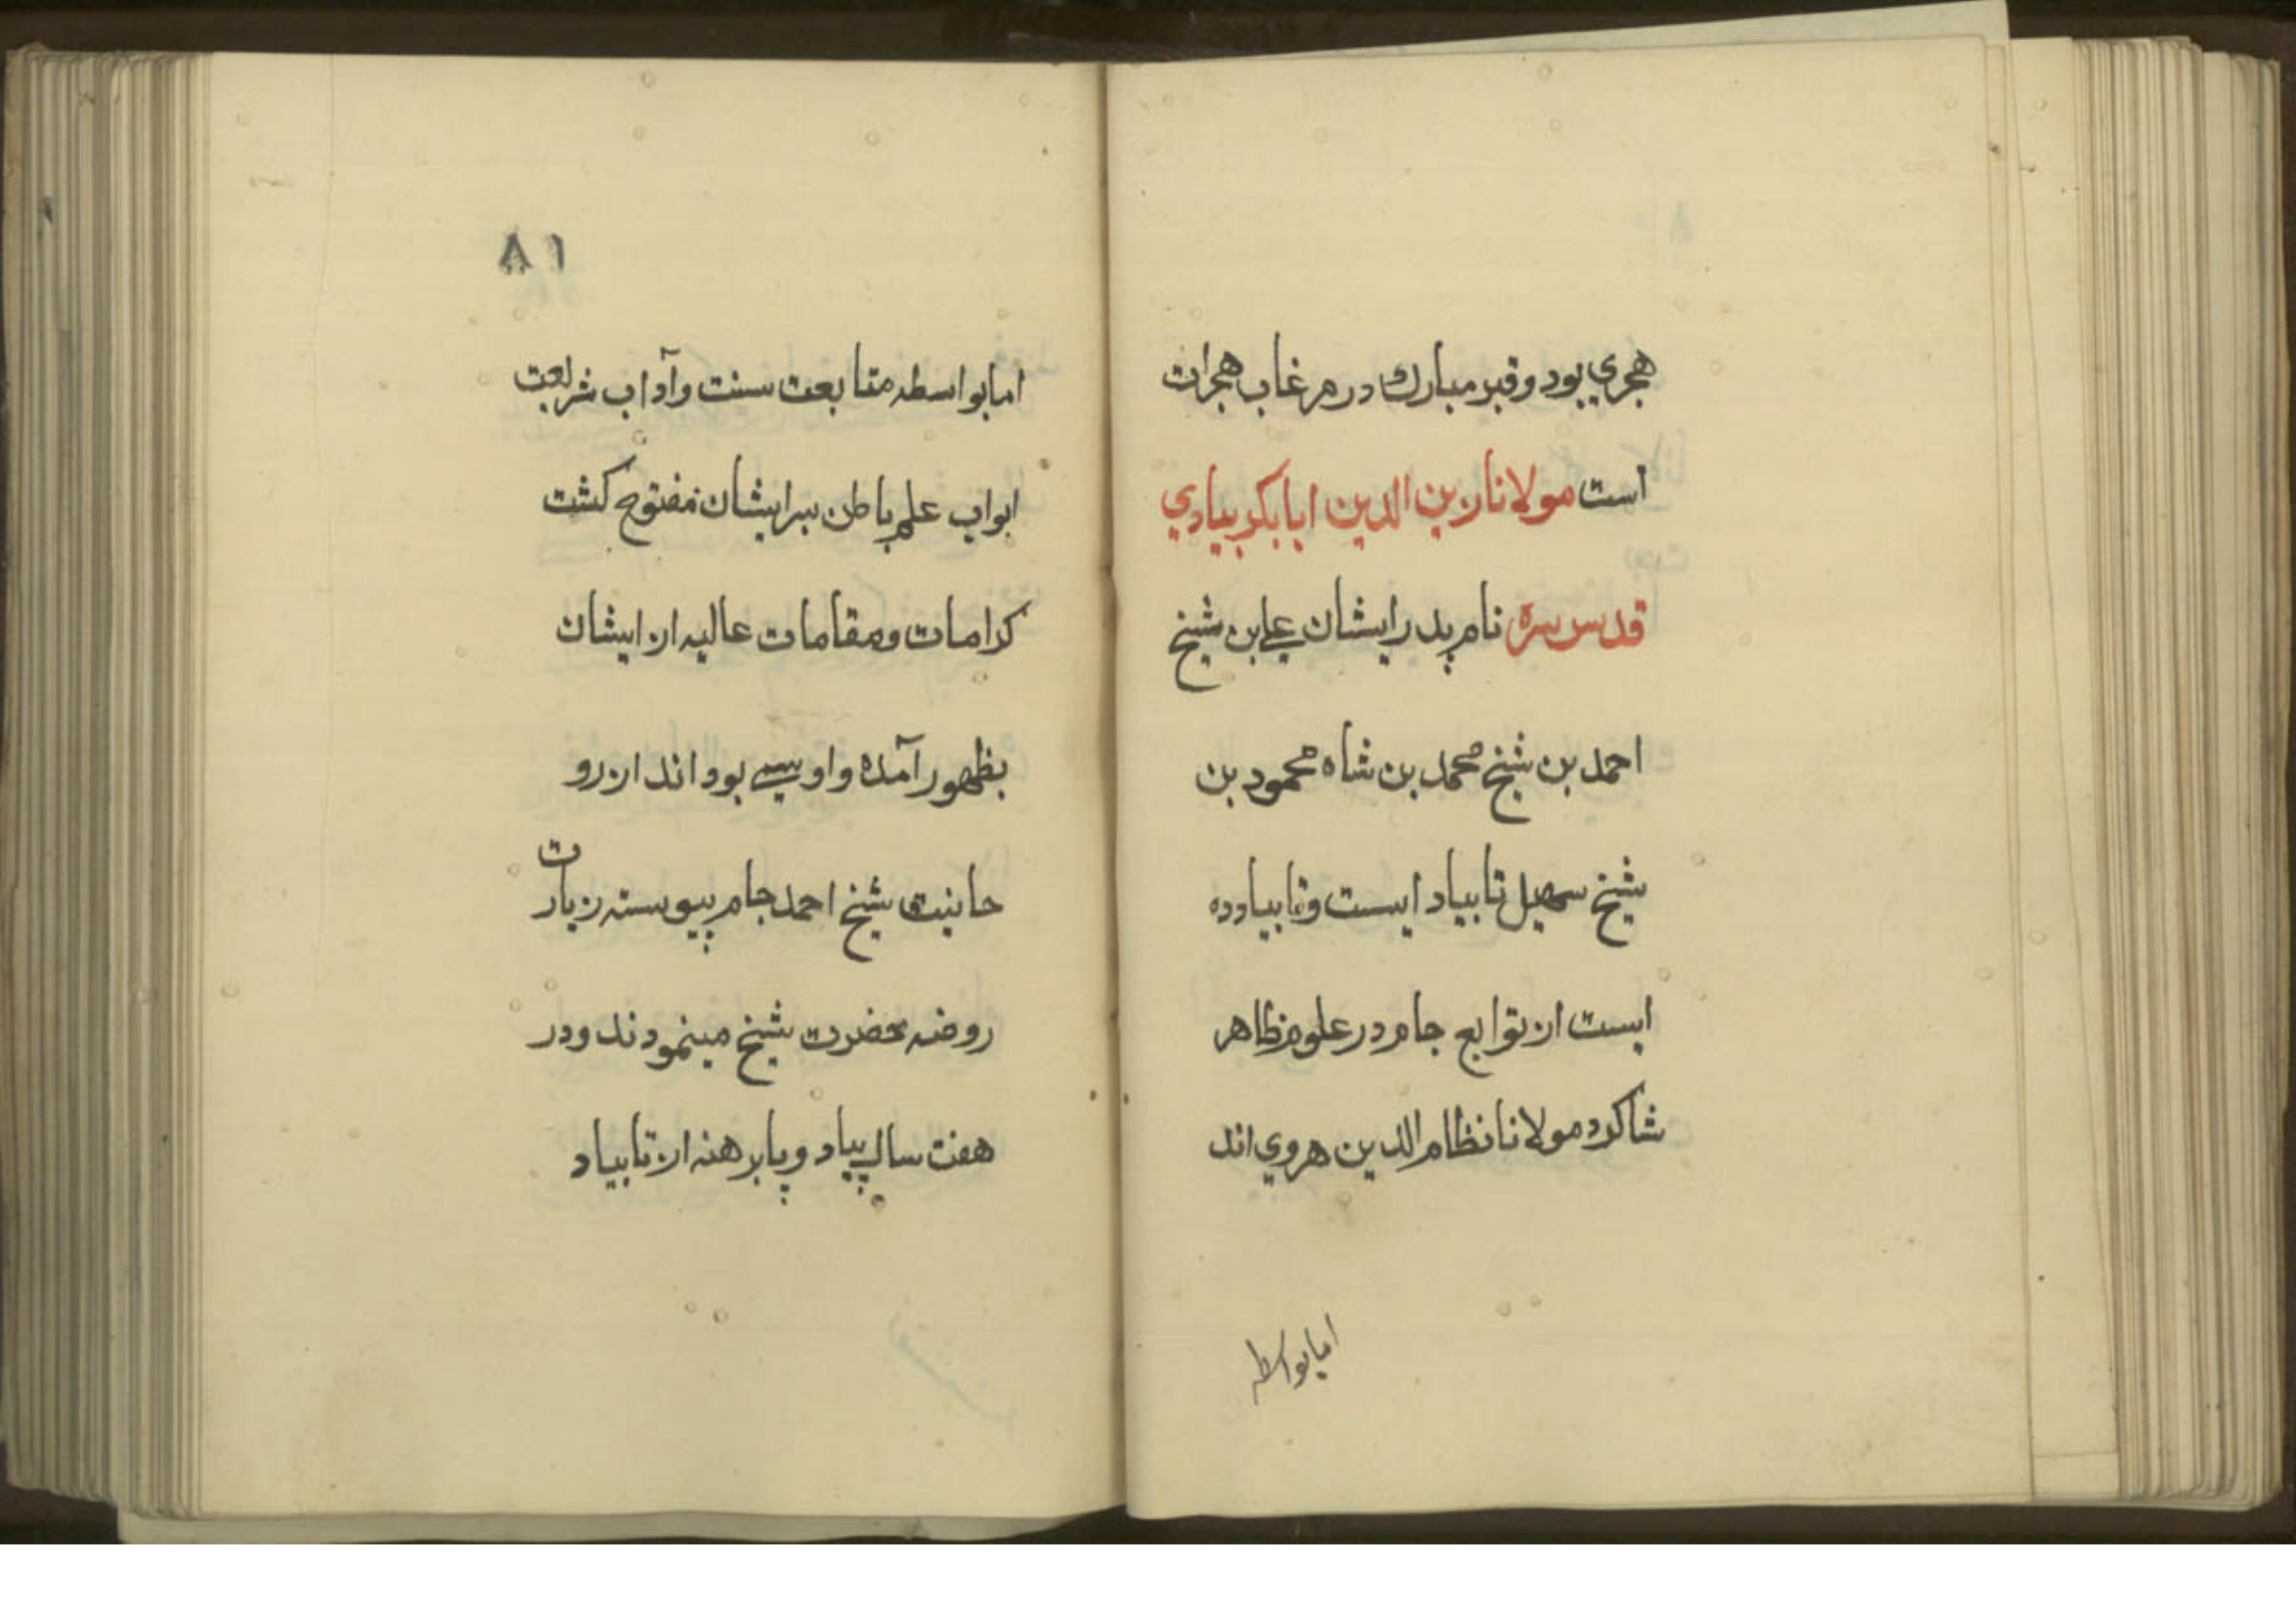 هجري بود و قبر مبارك در مرغاب هجرات
است مولانا زين الدين ابابكر بيادي
قدس سره نام پدر ايشان علي بن شيخ
احمد بن شيخ محمد بن شاه محمود بن
شيخ سهيل تابياد ايست و تابياد ده
ايست از توابع جام در علوم ظاهر
شاكرد مولانا نظام الدين هروي اند
امابواسطه
٨١
امابواسطه متابعت سنت وآداب شريعت
ابواب علم باطن برايشان مفتوح كشت
كرامات ومقامات عاليه از ايشان
بظهور آمده و اويسي بود اند از رو
حانيت شيخ احمد جام پيوسته زيارت
روضه حضرت شيخ مينمودند ودر
هفت سال پياد و پابرهنه از تابياد